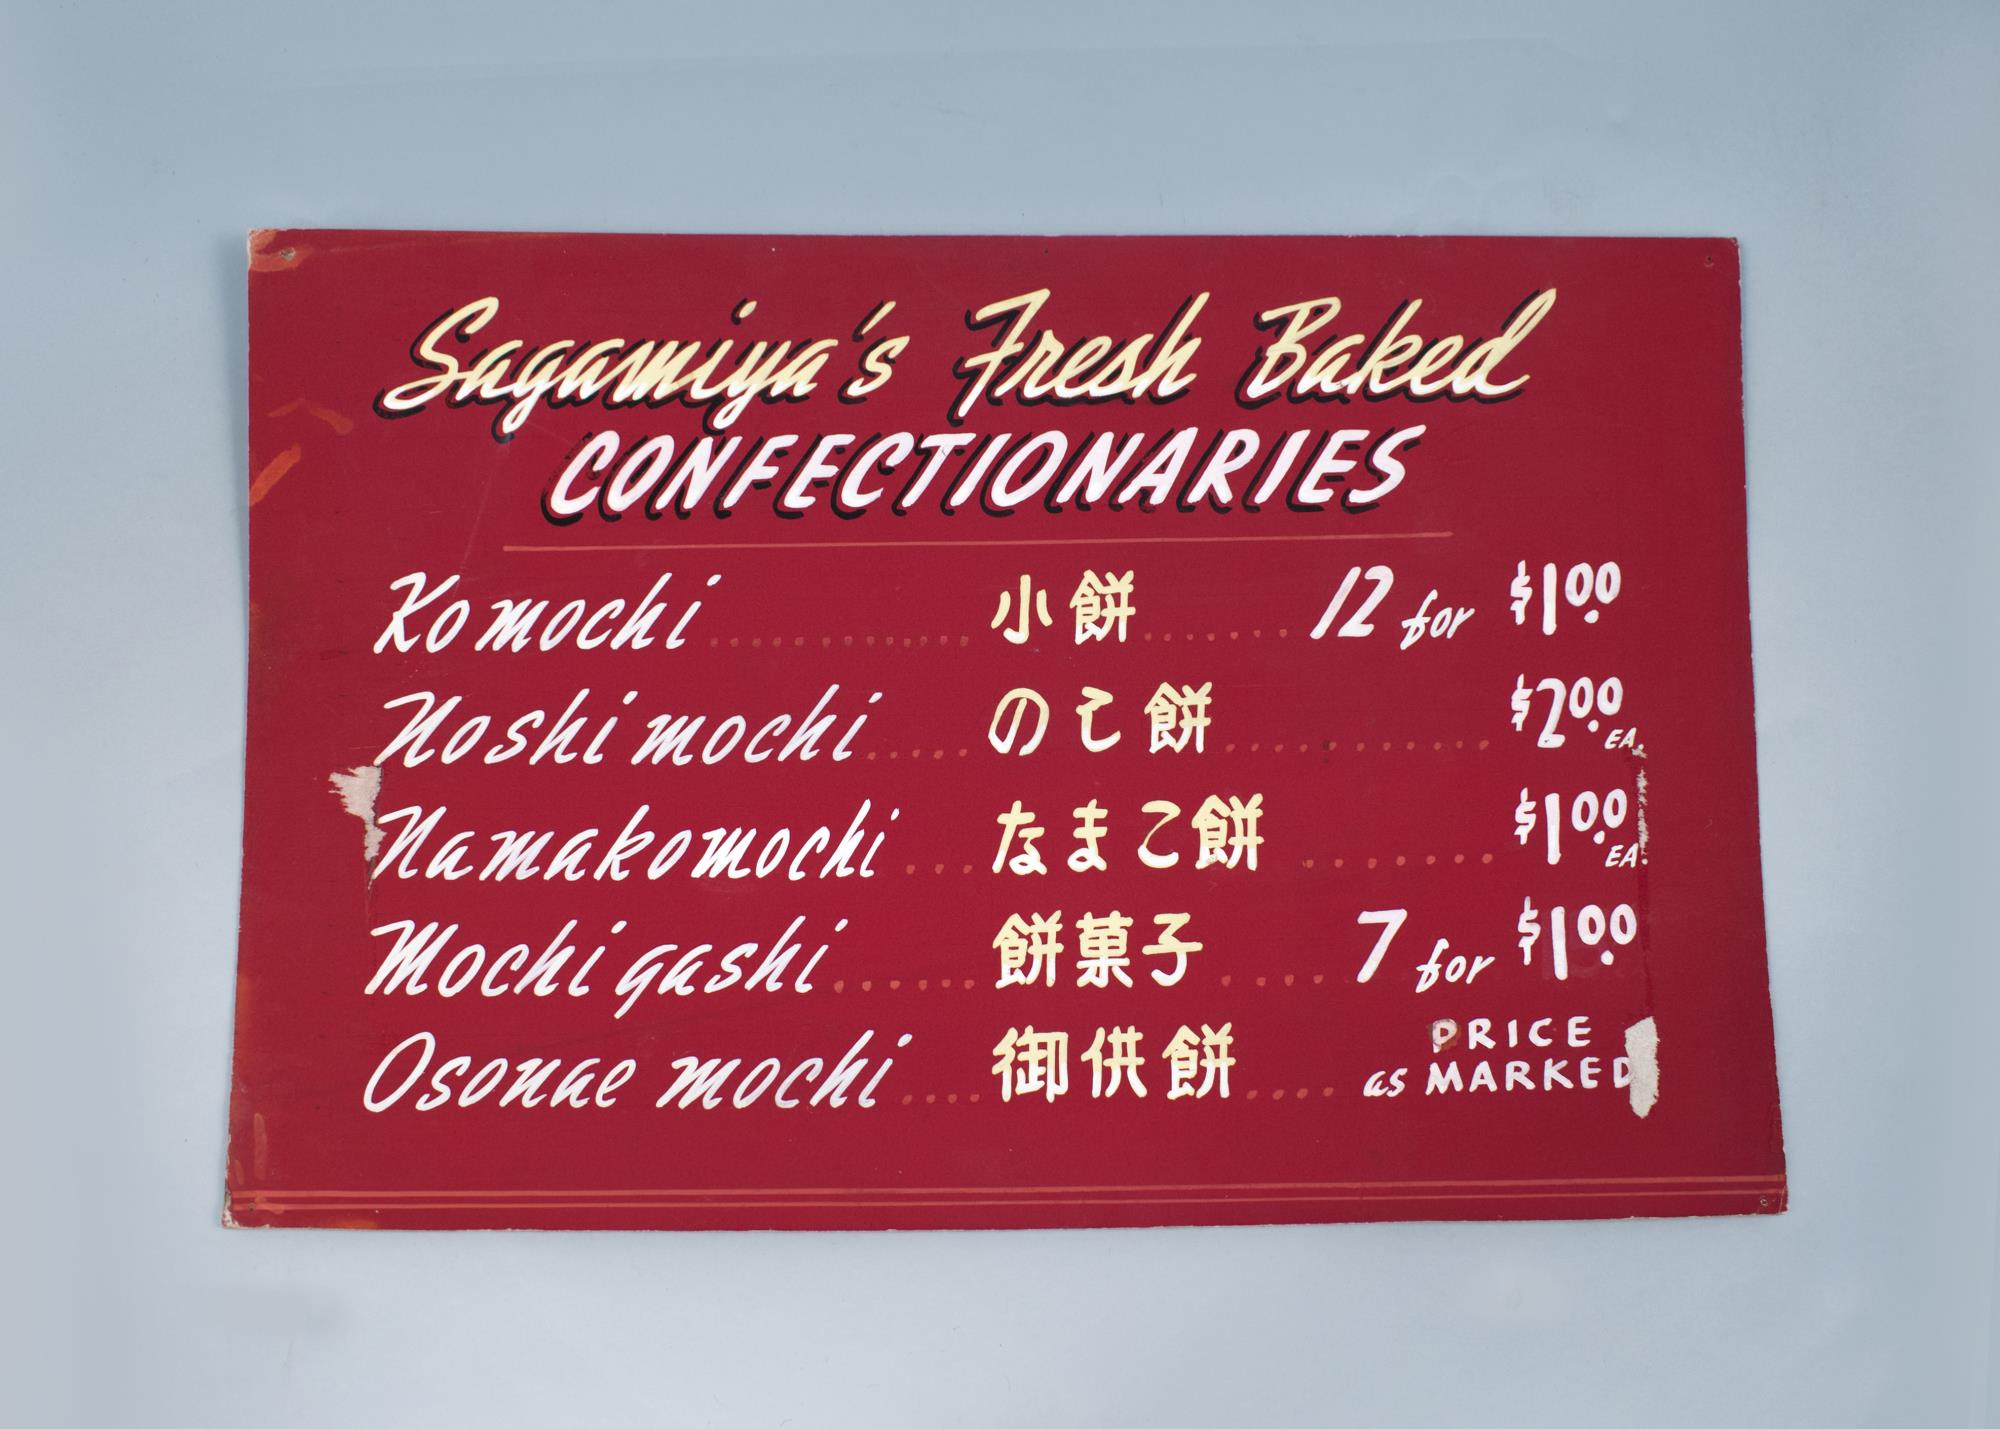 Sagamiya's Fresh Baked
CONFECTIONARIES
Komochi.................小餅.......12 for $1.00
Noshi mochi.....のし餅............$2.00 EA.
Namakomochi....なまこ餅.........$1.00 EA.
Mochi gashi.......餅菓子....7 for $1.00
Osonae mochi....御供餅....PRICE
as MARKED